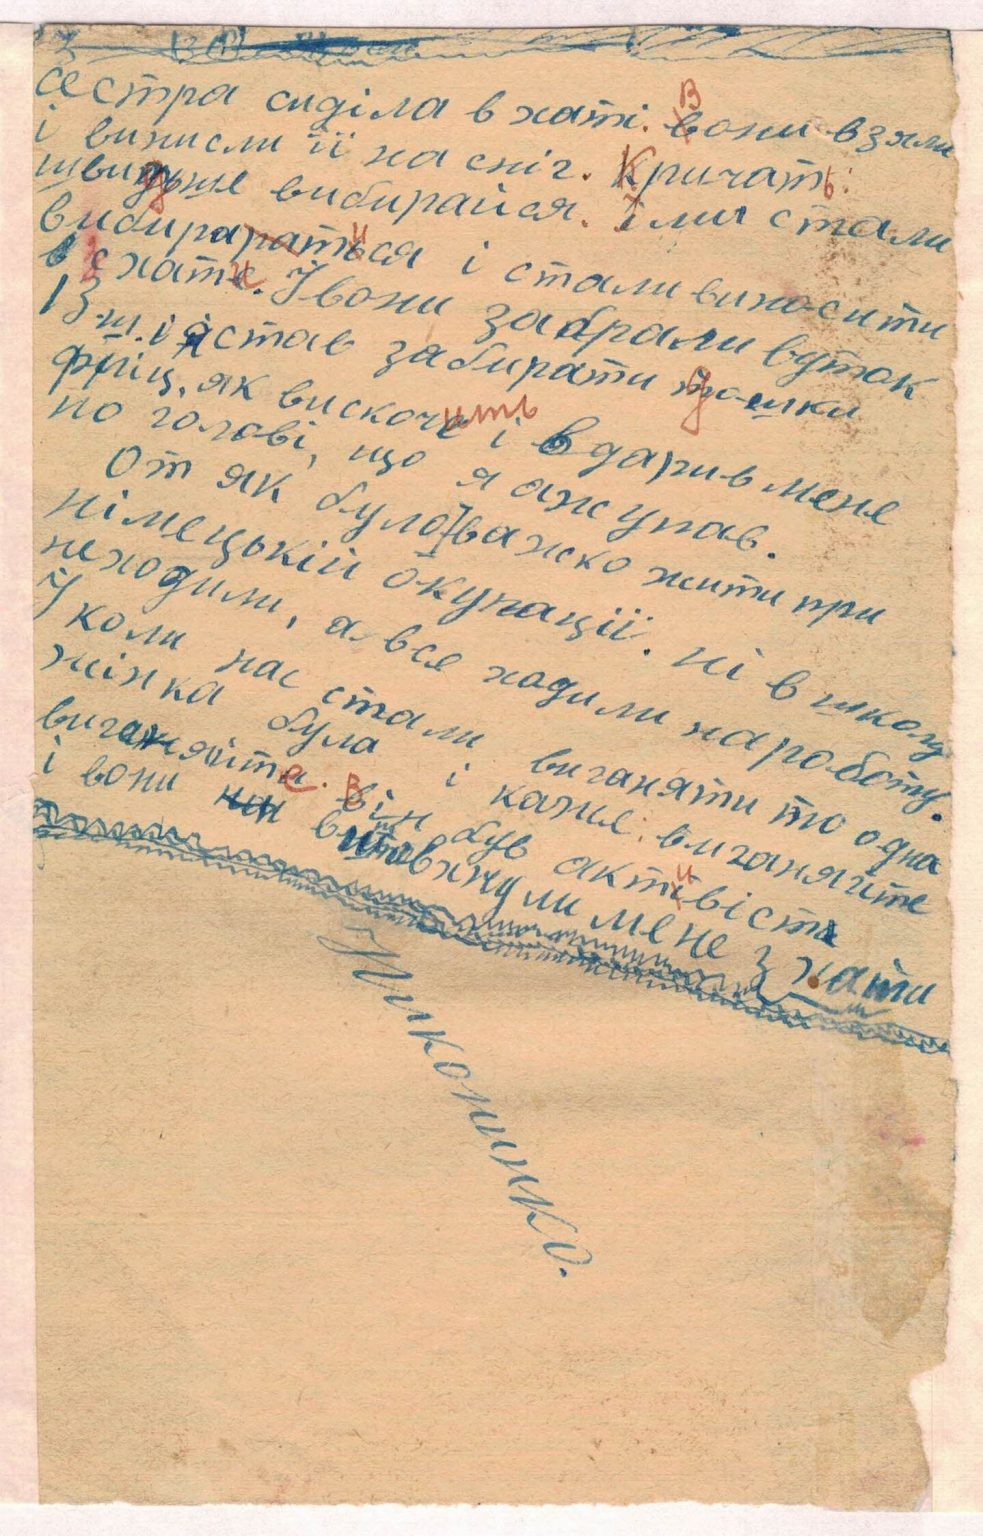 сестра сиділа в хаті. Вони взяли
і винисли її на сніг. Кричать:
швидше вибирайся. і ми стали
вибираться і стали виносити
з хати. І вони забрали вуток
13 ш. і я став забирати дошки
фріц, як вискочить і вдарив мене
по голові, що я аж упав.
От як було важко жити при
німецькій окупації. Ні в школу
неходили, а все ходили нароботу.
І коли нас стали виганяти то одна
жінка була і каже: виганяйте
виганяйте. Він був активіст
і вони виштовхнули мене з хати
Никонинко.